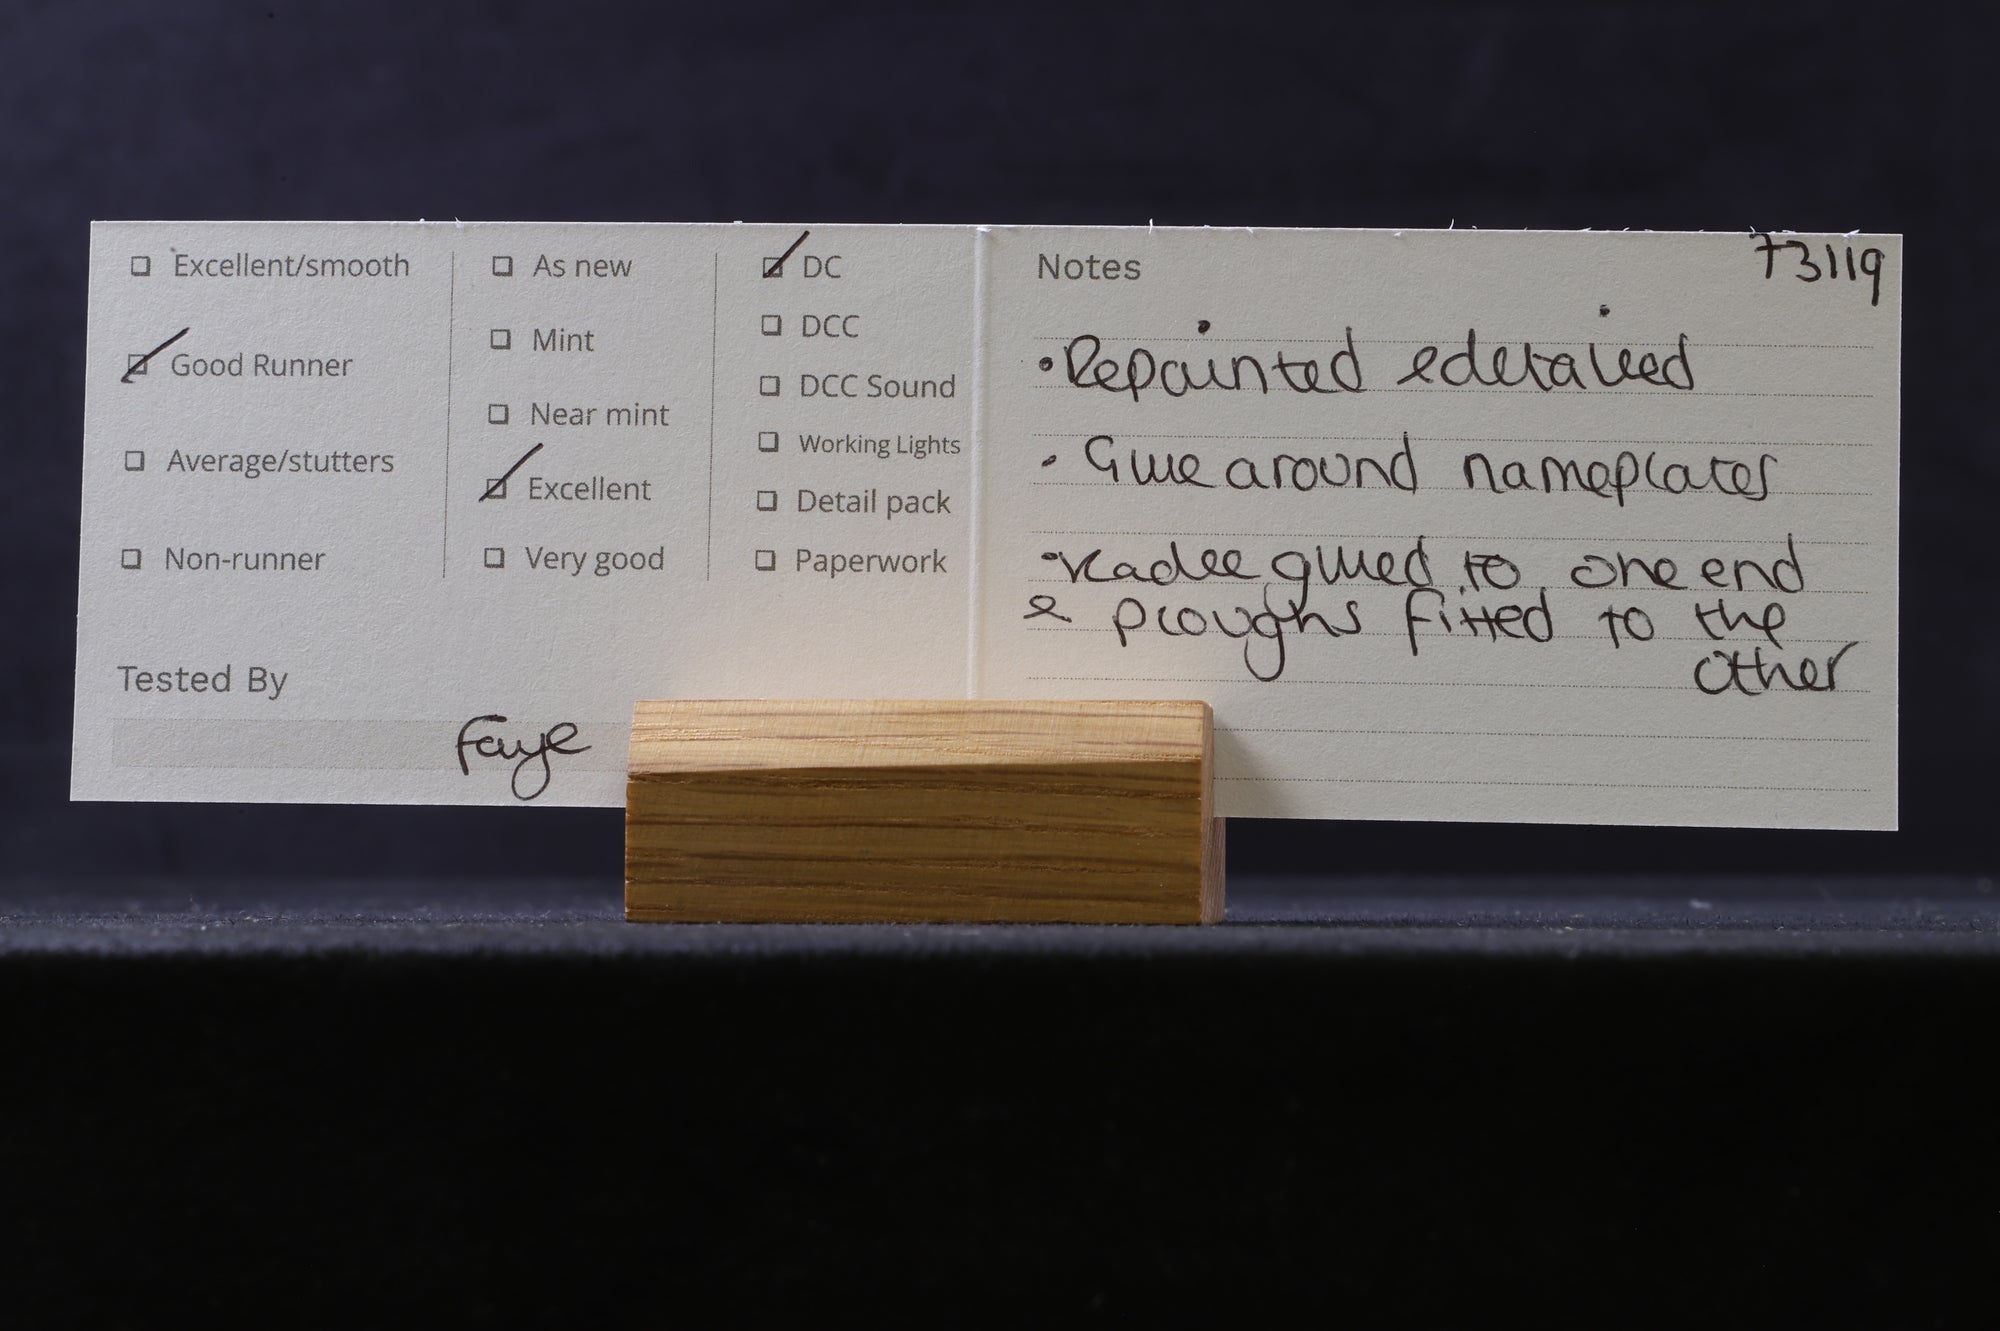 Excellent/smooth
Good Runner
Average/stutters
Non-runner
As new
Mint
Near mint
Excellent
Very good
DC
DCC
DCC Sound
Working Lights
Detail pack
Paperwork
Tested By
Faye
Notes
73119
• Repainted & detailed
• Glue around nameplates
• Kadee glued to one end
& ploughs fitted to the
other